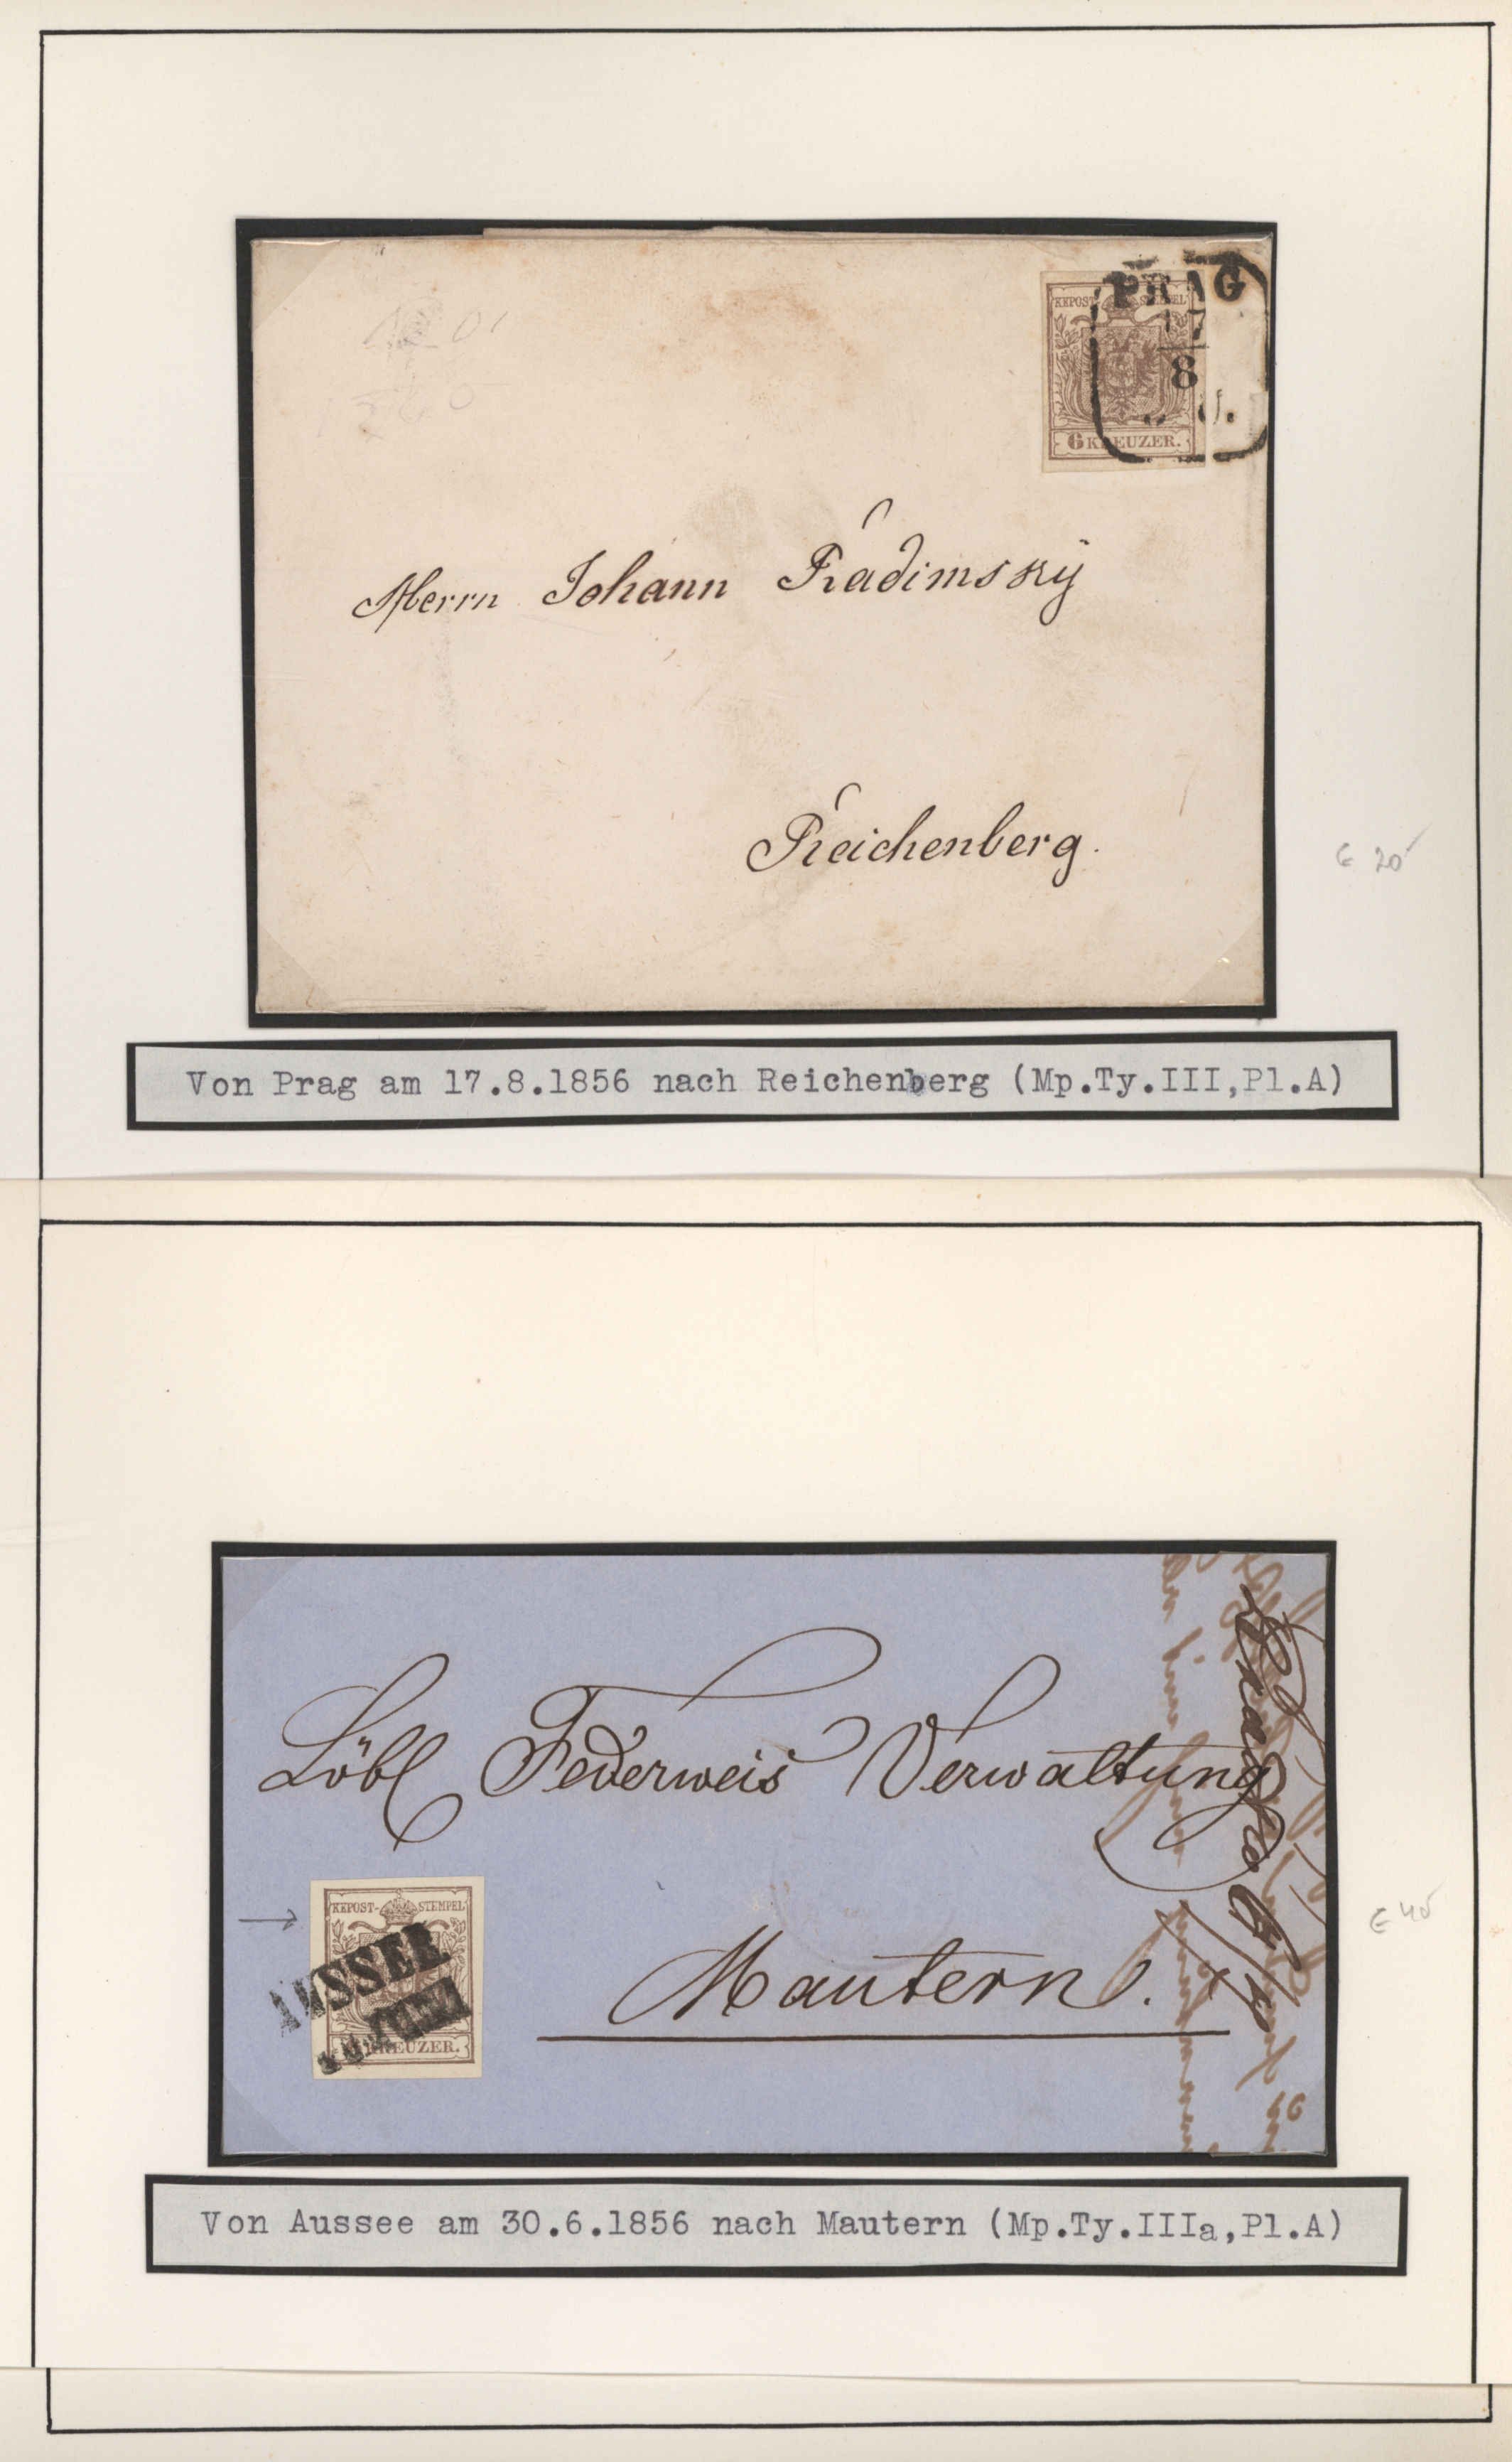 PRAG
17
8
KKPOST-STEMPEL
6 KREUZER.
Herrn Johann Radimský
Reichenberg.
€ 20
Von Prag am 17.8.1856 nach Reichenberg (Mp.Ty.III,Pl.A)
Löbl Federweis Verwaltung
KKPOST-STEMPEL
AUSSEE
KREUZER.
Mautern.
€ 40
Von Aussee am 30.6.1856 nach Mautern (Mp.Ty.IIIa,Pl.A)